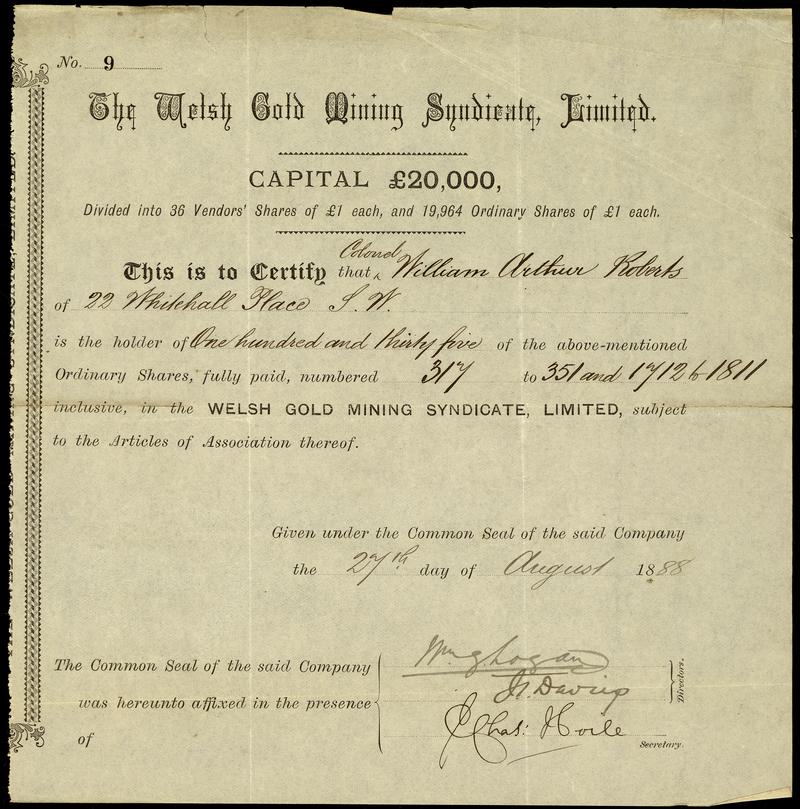 No. 9
The Welsh Gold Mining Syndicate, Limited.
CAPITAL £20,000,
Divided into 36 Vendors' Shares of £1 each, and 19,964 Ordinary Shares of £1 each.
Colonel
This is to Certify that William Arthur Roberts
of 22 Whitehall Place S. W.
is the holder of One hundred and thirty five of the above-mentioned
Ordinary Shares, fully paid, numbered 317 to 351 and 1712 to 1811
inclusive, in the WELSH GOLD MINING SYNDICATE, LIMITED, subject
to the Articles of Association thereof.
Given under the Common Seal of the said Company
the 27th day of August 1888
The Common Seal of the said Company
was hereunto affixed in the presence
of
Davies
Chas: Hoile
Directors.
Secretary.